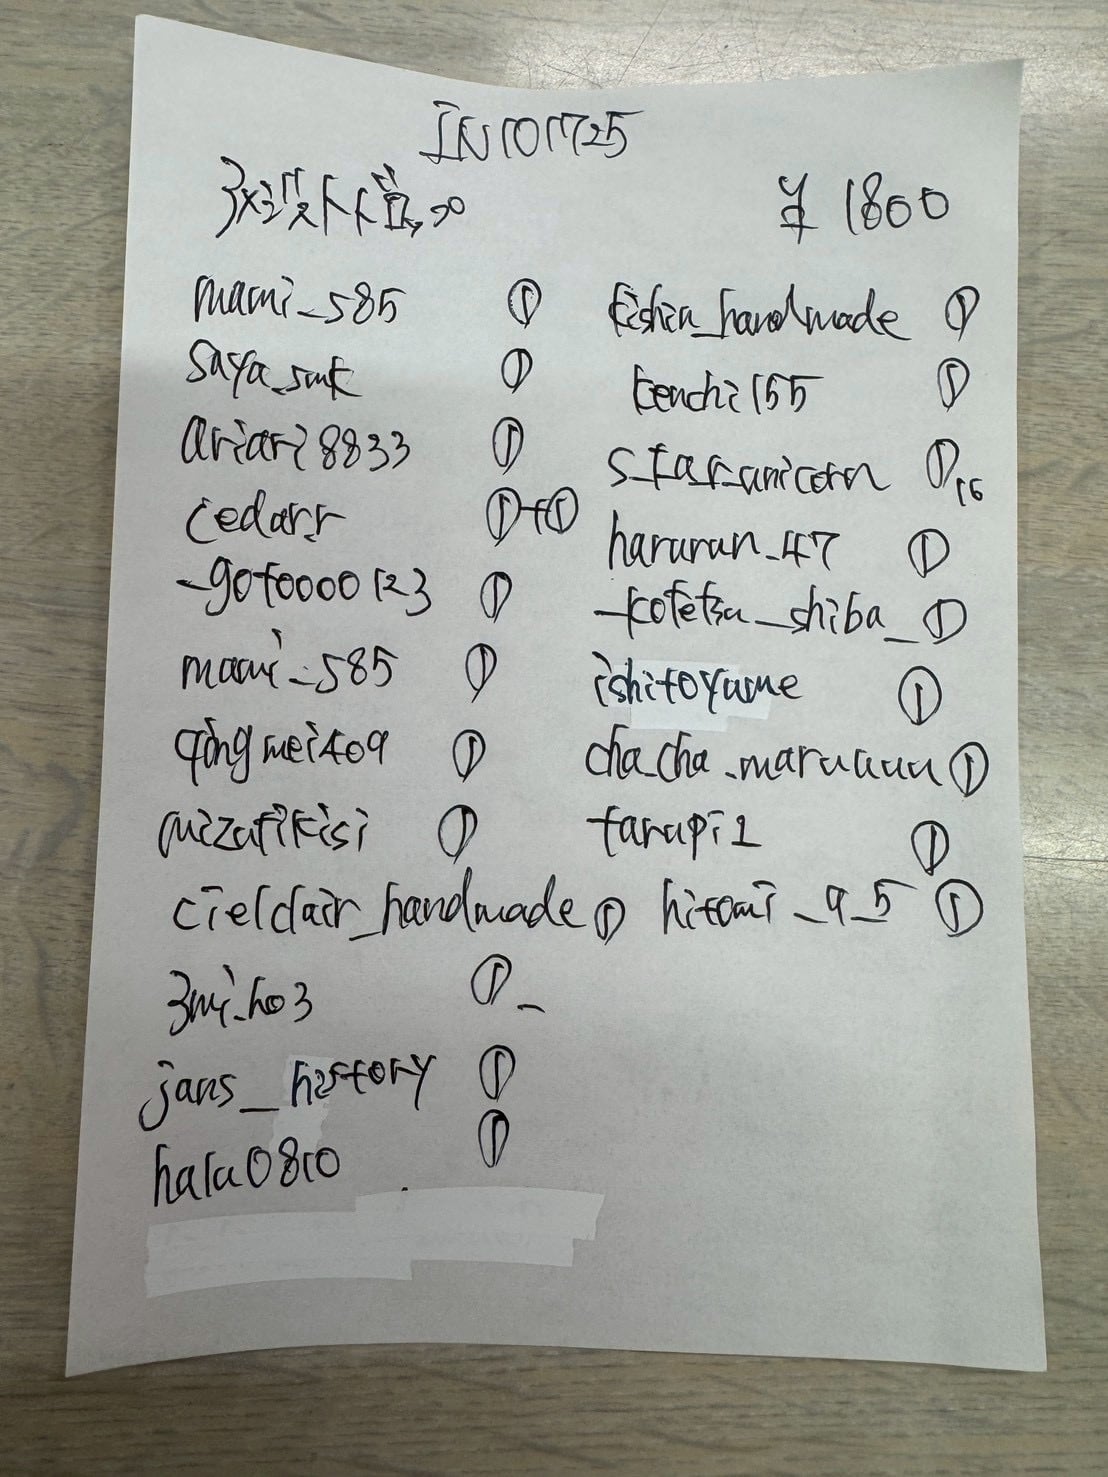 IN101725
¥1800
mami_585 ①
saya_smk ①
ariari8833 ①
cedarr ①+①
_gotoooo123 ①
mami_585 ①
qingmei409 ①
mizutikisi ①
cielclair_handmade ①
3mi_ho3 ①_
jans_history ①
halu0810 ①
kishin_handmade ①
kenchi155 ①
s_tar_unicorn ①16
haruran_47 ①
_kotetsu_shiba_ ①
ishitoyume ①
cha.cha.maruuuu ①
tarupi1 ①
hitomi_9_5 ①